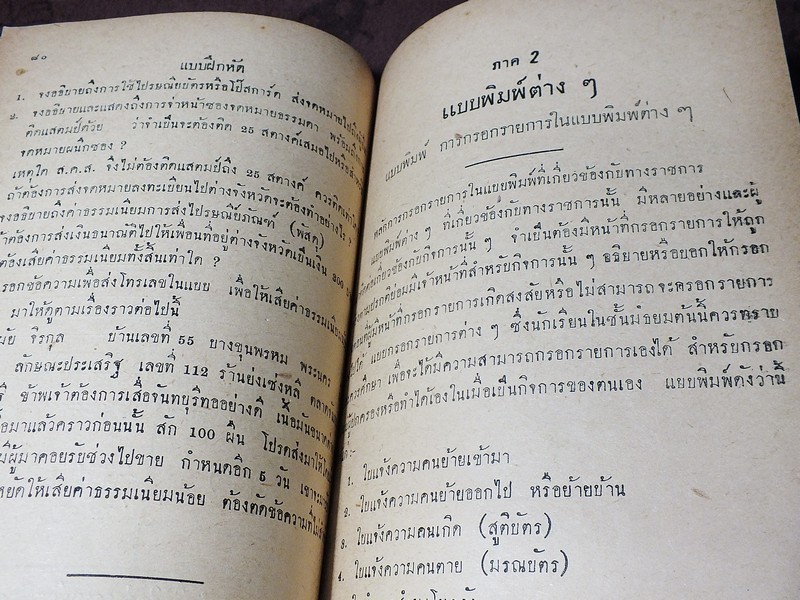 ๘๐
แบบฝึกหัด
1. จงอธิบายถึงการใช้ไปรษณียบัตรหรือโป๊สการ์ด ส่งจดหมายไป
2. จงอธิบายและแสดงถึงการจ่าหน้าซองจดหมายธรรมดา พร้อม
ติดแสตมป์ด้วย ว่าจำเป็นจะต้องติด 25 สตางค์เสมอไปหรือ
จดหมายผนึกซอง ?
เหตุใด ส.ค.ส. จึงไม่ต้องติดแสตมป์ถึง 25 สตางค์ ควรติดเท่าใด
ถ้าต้องการส่งจดหมายลงทะเบียนไปต่างจังหวัดจะต้องทำอย่างไร ?
จงอธิบายถึงค่าธรรมเนียมการส่งไปรษณีย์ภัณฑ์ (พัสดุ)
ต้องการส่งเงินธนาณัติไปให้เพื่อนที่อยู่ต่างจังหวัดเป็นเงิน 300
ต้องเสียค่าธรรมเนียมทั้งสิ้นเท่าใด ?
กรอกข้อความเพื่อส่งโทรเลขในแบบ เพื่อให้เสียค่าธรรมเนียม
มาให้ดูตามเรื่องราวต่อไปนี้
จิรกุล บ้านเลขที่ 55 บางขุนพรหม พระนคร
ลักษณะประเสริฐ เลขที่ 112 ร้านย่งเซ่งหลี ตลาด
ข้าพเจ้าต้องการเสื่อจันทบุรีทออย่างดี เนื้อมันขนาด
มาแล้วคราวก่อนนั้น สัก 100 ผืน โปรดส่งมาให้
มีผู้มาคอยรับช่วงไปขาย กำหนดอีก 5 วัน เขาจะ
ให้เสียค่าธรรมเนียมน้อย ต้องตัดข้อความที่ไม่
ภาค 2
แบบพิมพ์ต่าง ๆ
แบบพิมพ์ การกรอกรายการในแบบพิมพ์ต่าง ๆ
หลักการกรอกรายการในแบบพิมพ์ที่เกี่ยวข้องกับทางราชการ
แบบพิมพ์ต่าง ๆ ที่เกี่ยวข้องกับทางราชการนั้น มีหลายอย่างและผู้
เกี่ยวข้องกับกิจการนั้น ๆ จำเป็นต้องมีหน้าที่กรอกรายการให้ถูก
ตามปรกติย่อมมีเจ้าหน้าที่สำหรับกิจการนั้น ๆ อธิบายหรือบอกให้กรอก
ผู้มีหน้าที่กรอกรายการเกิดสงสัยหรือไม่สามารถจะกรอกรายการ
ได้ แบบกรอกรายการต่าง ๆ ซึ่งนักเรียนในชั้นมัธยมต้นนี้ควรทราบ
ควรศึกษา เพื่อจะได้มีความสามารถกรอกรายการเองได้ สำหรับกรอก
ผู้ปกครองหรือทำได้เองในเมื่อเป็นกิจการของตนเอง แบบพิมพ์ดังว่านี้
1. ใบแจ้งความคนย้ายเข้ามา
2. ใบแจ้งความคนย้ายออกไป หรือย้ายบ้าน
3. ใบแจ้งความคนเกิด (สูติบัตร)
4. ใบแจ้งความคนตาย (มรณบัตร)